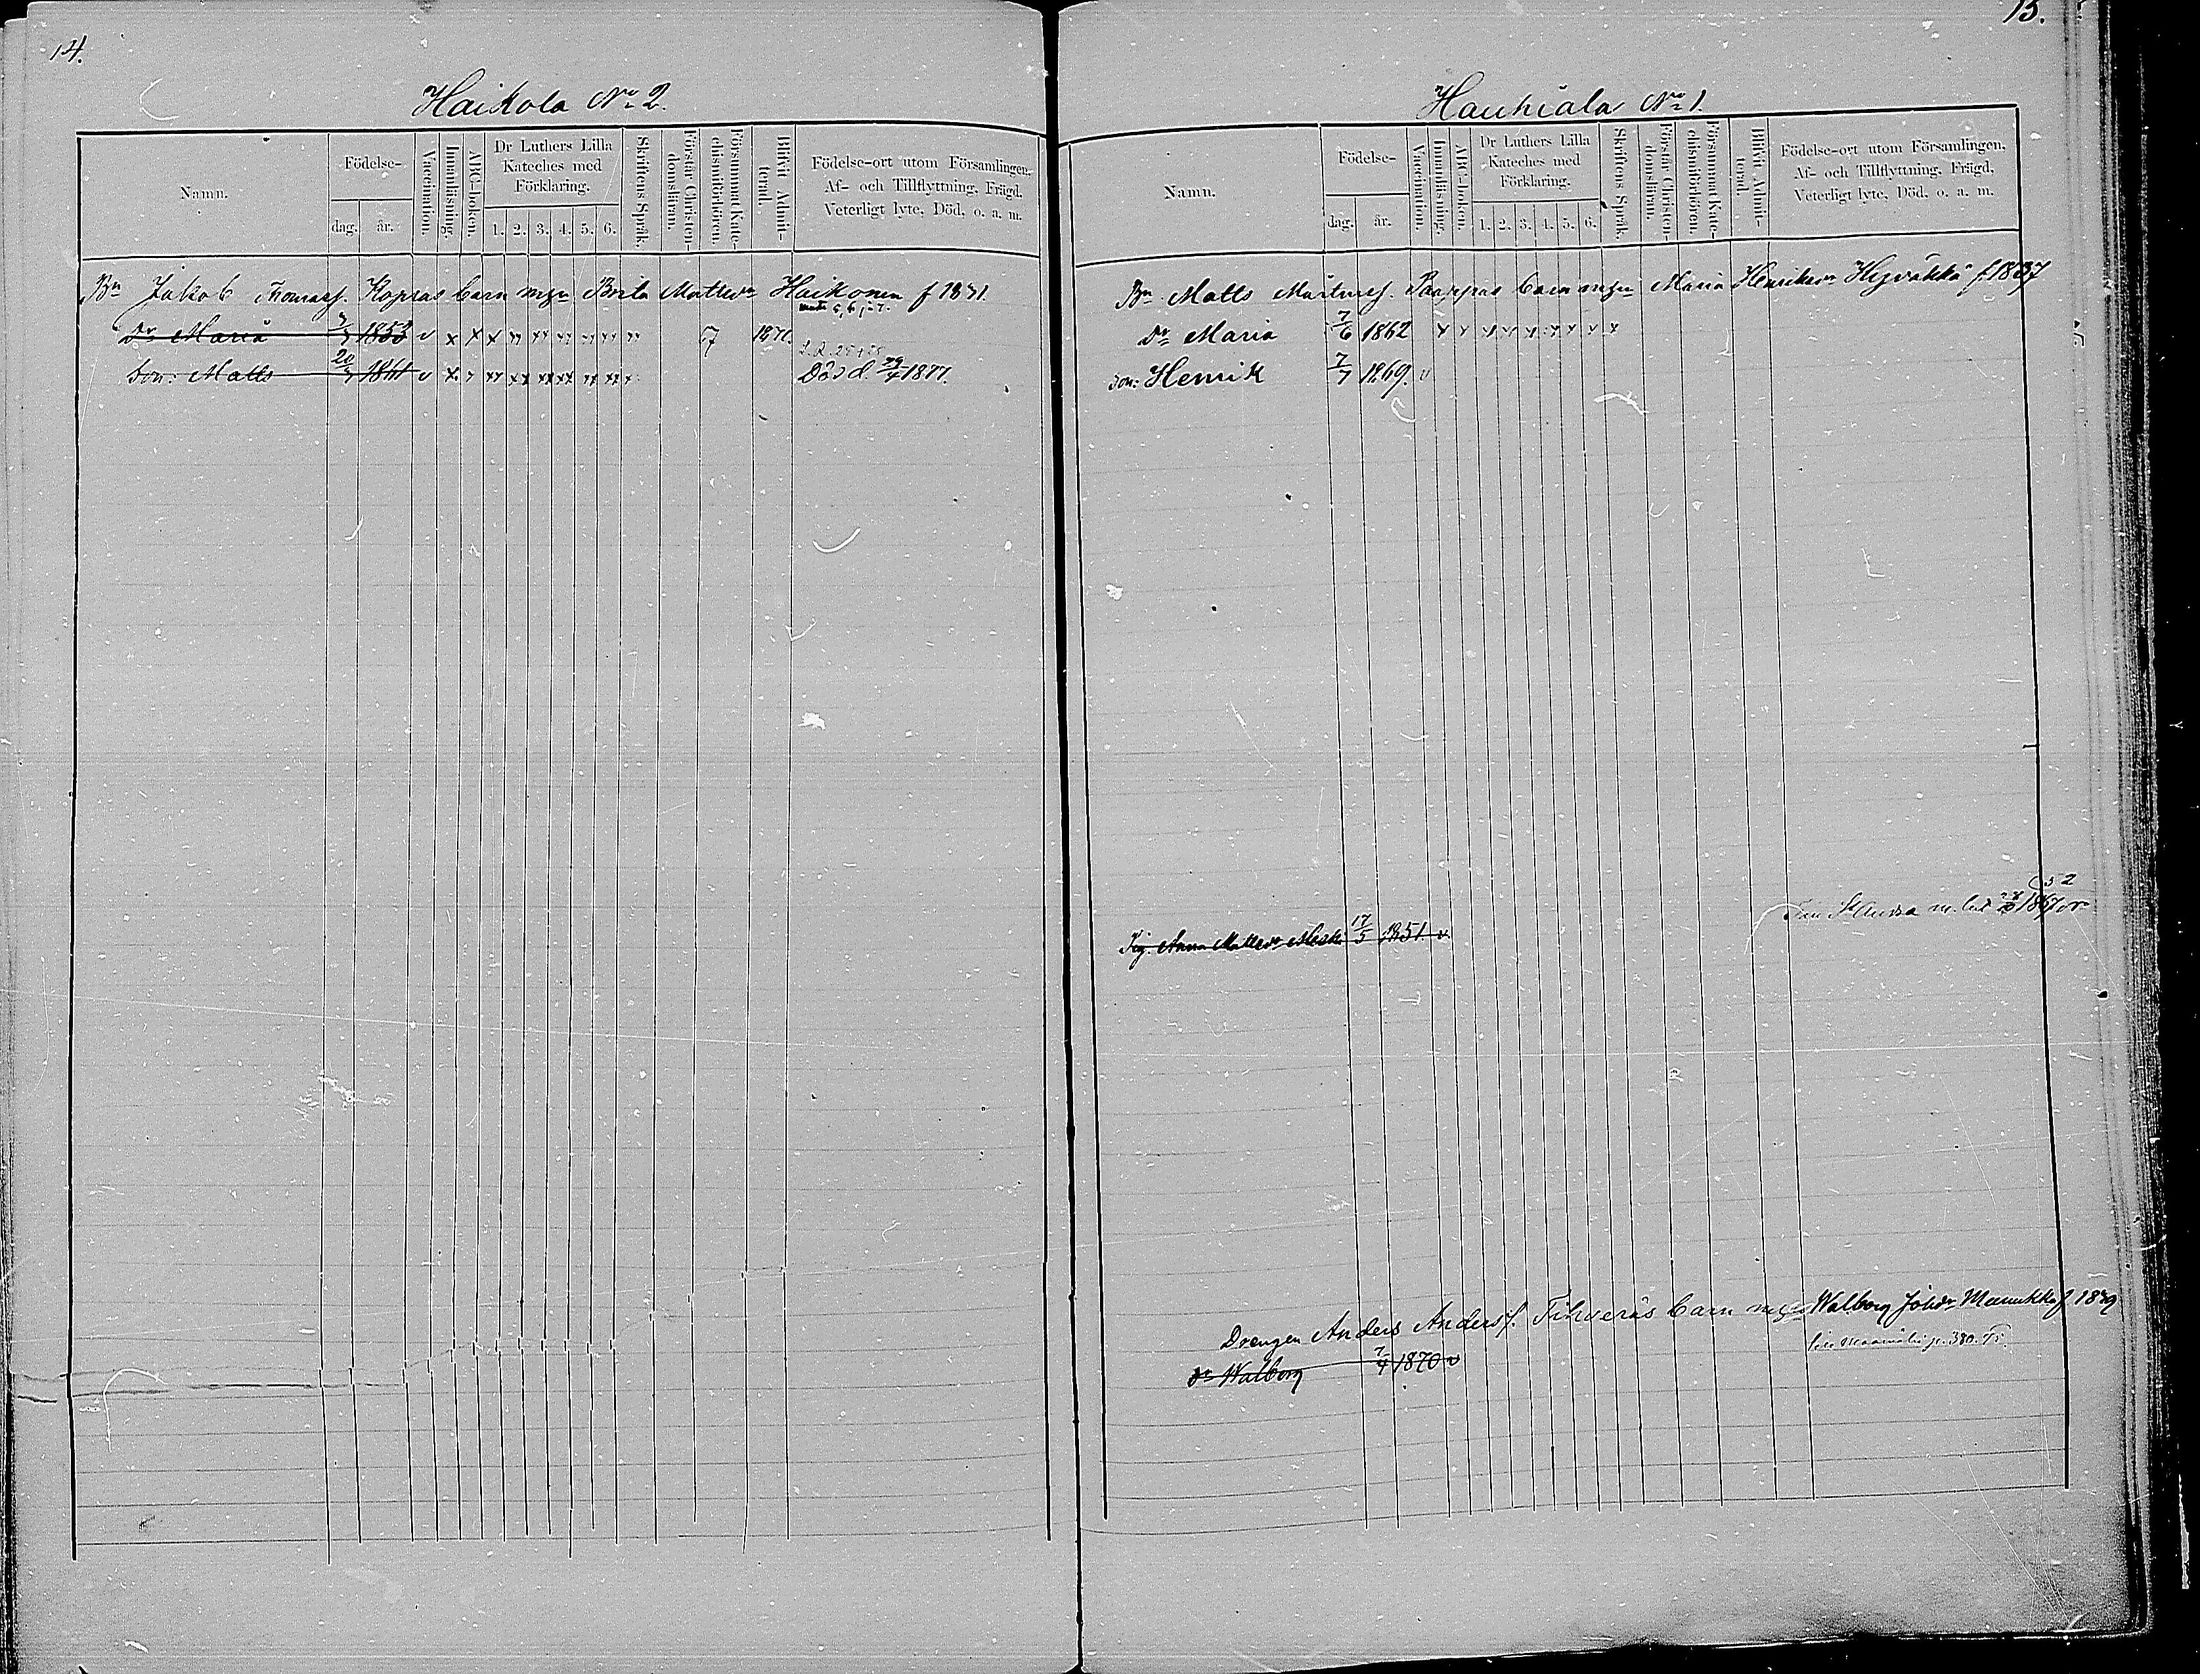 14.
Haikola No 2.
Namn.
Födelse-
dag. år.
Vaccination.
Innanläsning.
ABC-boken.
Dr Luthers Lilla
Kateches med
Förklaring.
1. 2. 3. 4. 5. 6.
Skriftens Språk.
Förstår Christen-
domsläran.
Försummat Kate-
chismiförhören.
Blifvit Admit-
terad.
Födelse-ort utom Församlingen,
Af- och Tillflyttning, Frägd,
Veterligt lyte, Död, o. a. m.
Bn Jakob Thomasf. Kopras barn mzn Brita Mattsdr Haikonen f 1831.
Dr Maria 1853 v x x x 7 1871.
Son: Matts 20 1861 v x Död 4 1877.
15.
Hauhiala No 1.
Namn.
Födelse-
dag. år.
Vaccination.
Innanläsning.
ABC-boken.
Dr Luthers Lilla
Kateches med
Förklaring.
1. 2. 3. 4. 5. 6.
Skriftens Språk.
Förstår Christen-
domsläran.
Försummat Kate-
chismiförhören.
Blifvit Admit-
terad.
Födelse-ort utom Församlingen,
Af- och Tillflyttning, Frägd,
Veterligt lyte, Död, o. a. m.
Bn Matts Mårtensf. Paappas barn mzn Maria Henriksdr f 1837
Dr Maria 7/6 1862 x x x x x x x x x
son: Henrik 7/7 1869. v
52
St Andrea 1867
Pig. Anna Mattsdr 17/5 1851. v
Drengen Anders Andersf. Tihveräs barn Walborg Johdr f 1839
p. 380.
dr Walborg 7/4 1870 v